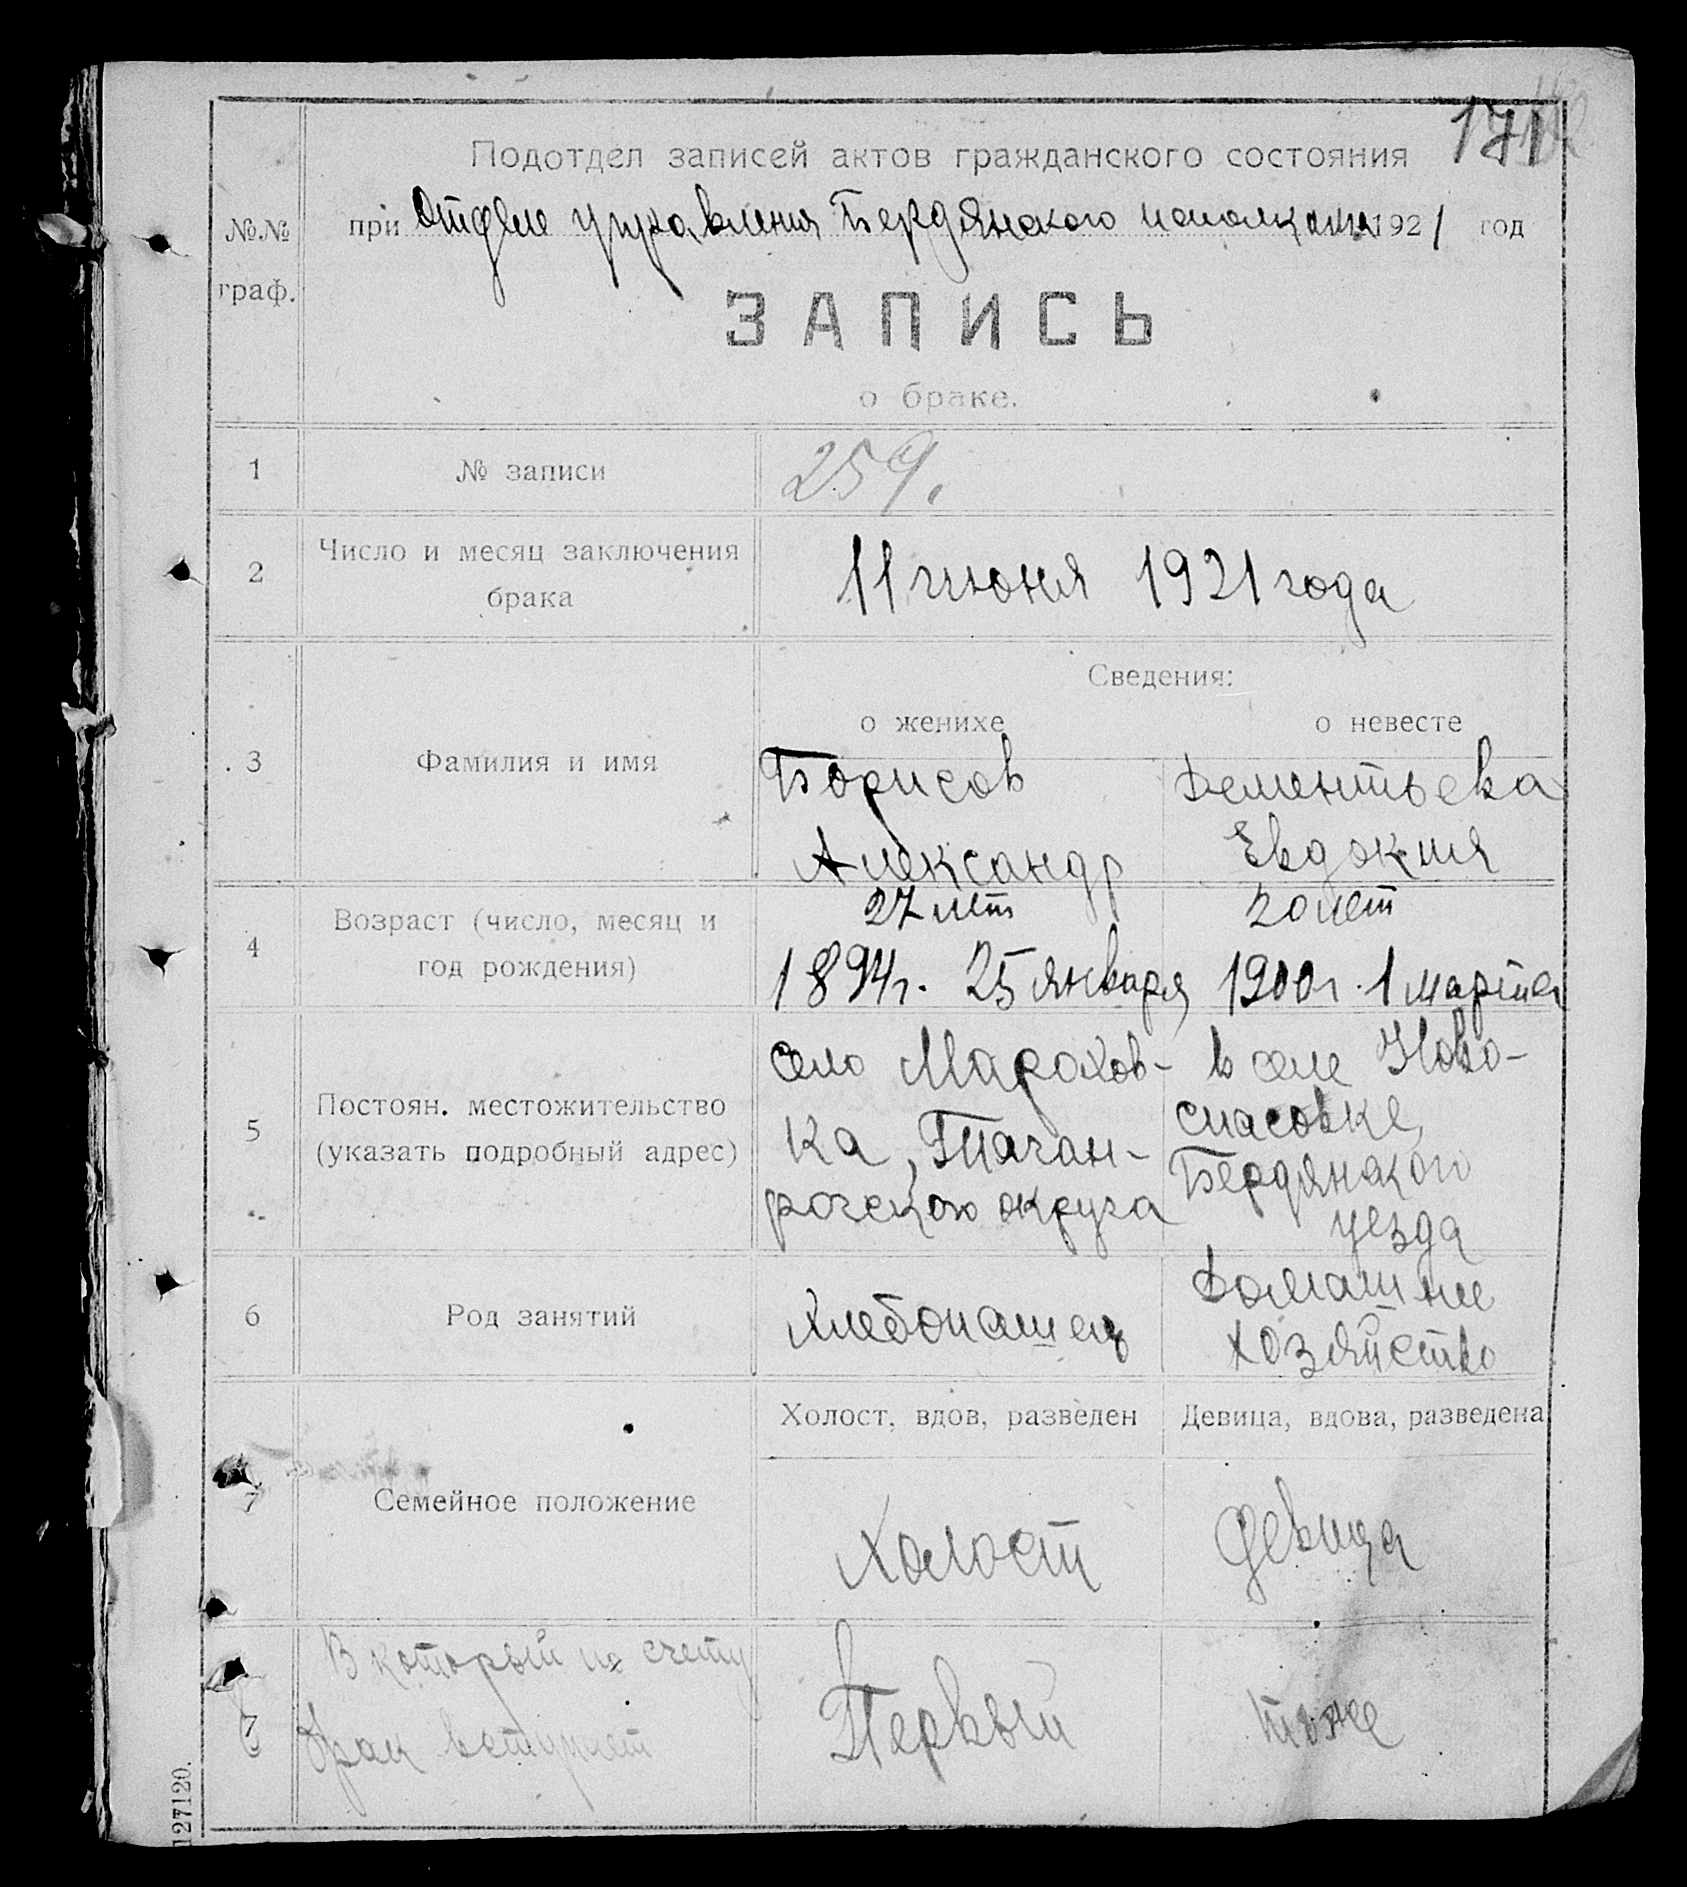 171
Подотдел записей актов гражданского состояния
при Отделе управления Бердянского исполкома 1921 год
№№ граф.
ЗАПИСЬ
о браке.
1 № записи 259.
2 Число и месяц заключения брака 11 июня 1921 года
Сведения:
о женихе о невесте
3 Фамилия и имя
Борисов Дементьева
Александр Евдокия
27 лет 20 лет
4 Возраст (число, месяц и год рождения)
1894г. 25 января 1900г. 1 марта
5 Постоян. местожительство
(указать подробный адрес)
село Марахов- в селе Ново-
ка, Таган- спасовке,
рогского округа Бердянского
уезда
6 Род занятий
хлебопашец Домашнее
хозяйство
Холост, вдов, разведен Девица, вдова, разведена
7 Семейное положение
Холост Девица
7 В который по счету
брак вступает
Первый тоже
127120.